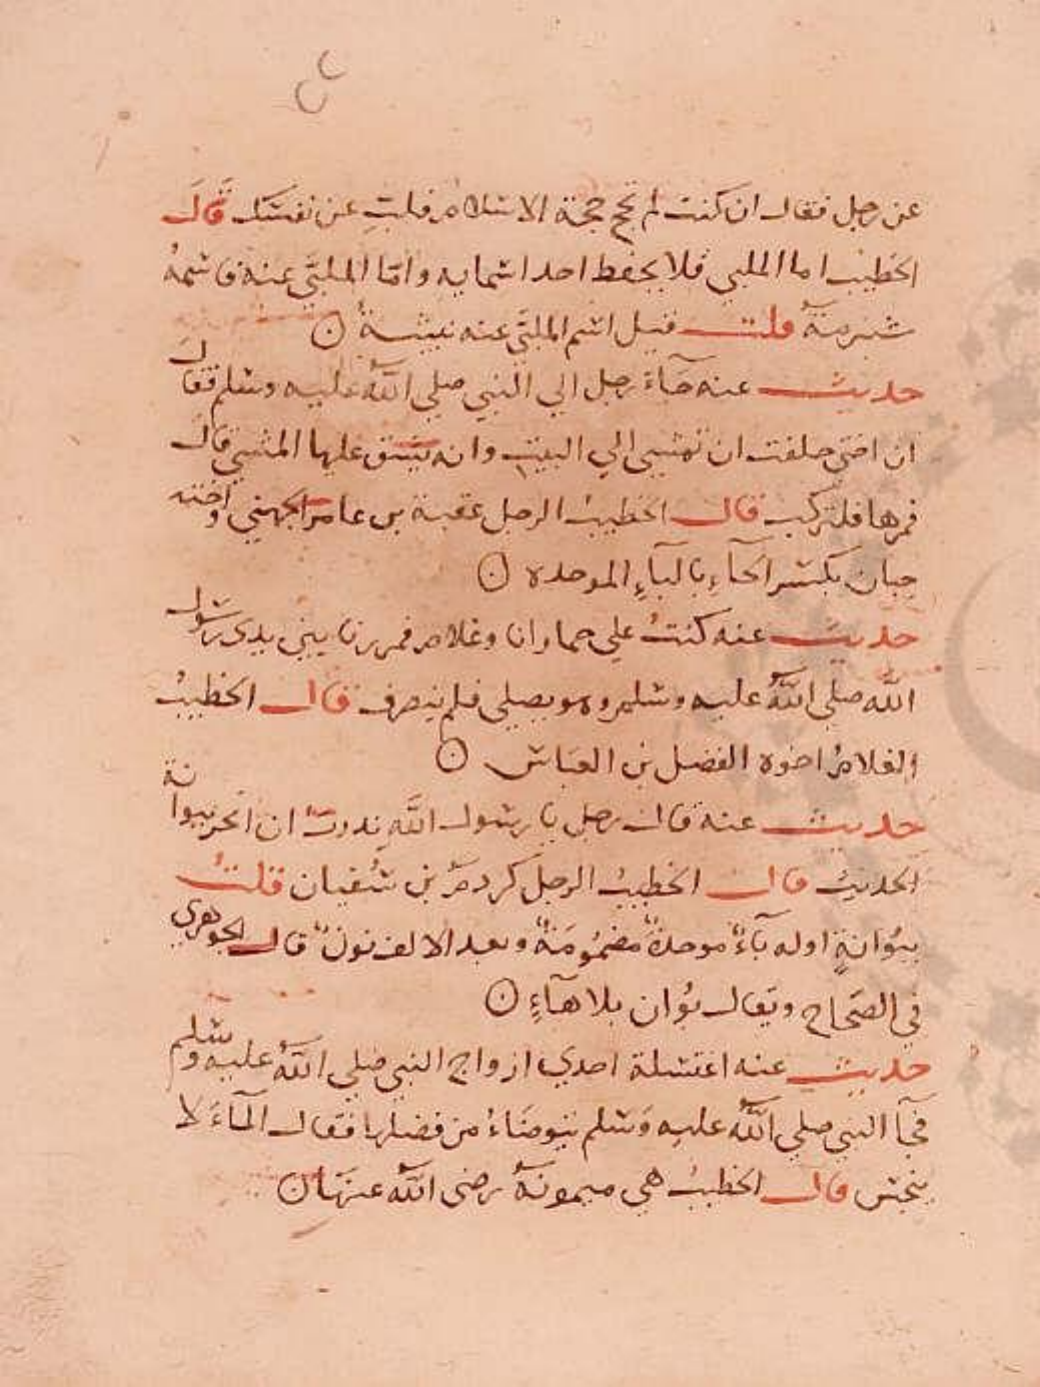 عن رجل فقال ان كنت لم تحج حجة الاسلام فلبِّ عن نفسك قال
الخطيب اما الملبي فلا يحفظ احد اسمايه وامّا الملبَّي عنه فاسمهُ
شبرمة قلت فقيل اسم الملبَّي عنه نبيشة ۞
حديث عنه جآءَ رجل الي النبي صلي اللهُ عليه وسلم فقال
ان اختي حلفت ان تمشي الي البيت وانه يشق عليها المشي قال
فمرها فلتركب قال الخطيبُ الرجل عقبة بن عامر الجهني واخته
حِبان بكسر الحآءِ بالبآءِ الموحده ۞
حديث عنه كنتُ علي حمار انا وغلام فمررنا بين يدي رسول
الله صلي اللهُ عليه وسلم وهو يصلي فلم ينصرف قال الخطيبُ
الغلامُ اخوه الفضل بن العباس ۞
حديث عنه قال رجل يا رسول اللهِ نذرت ان انحر ببوانة
الحديث قال الخطيبُ الرجل كردم بن سُفيان قلتُ
ببُوَانةٍ اوله بآءٌ موحدةٌ مضمُومَةٌ وبعد الالف نونٌ قال الجوهري
في الصَحاح ويقال بُوان بلا هآءٍ ۞
حديث عنه اغتسلة احدي ازواج النبي صلي اللهُ عليه وسلم
فجآ النبي صلي اللهُ عليه وَسلم يتوضاءُ من فضلها فقال المآءَ لا
ينجس قال الخطيبُ هي ميمونةُ رضي اللهُ عنهَا ۞